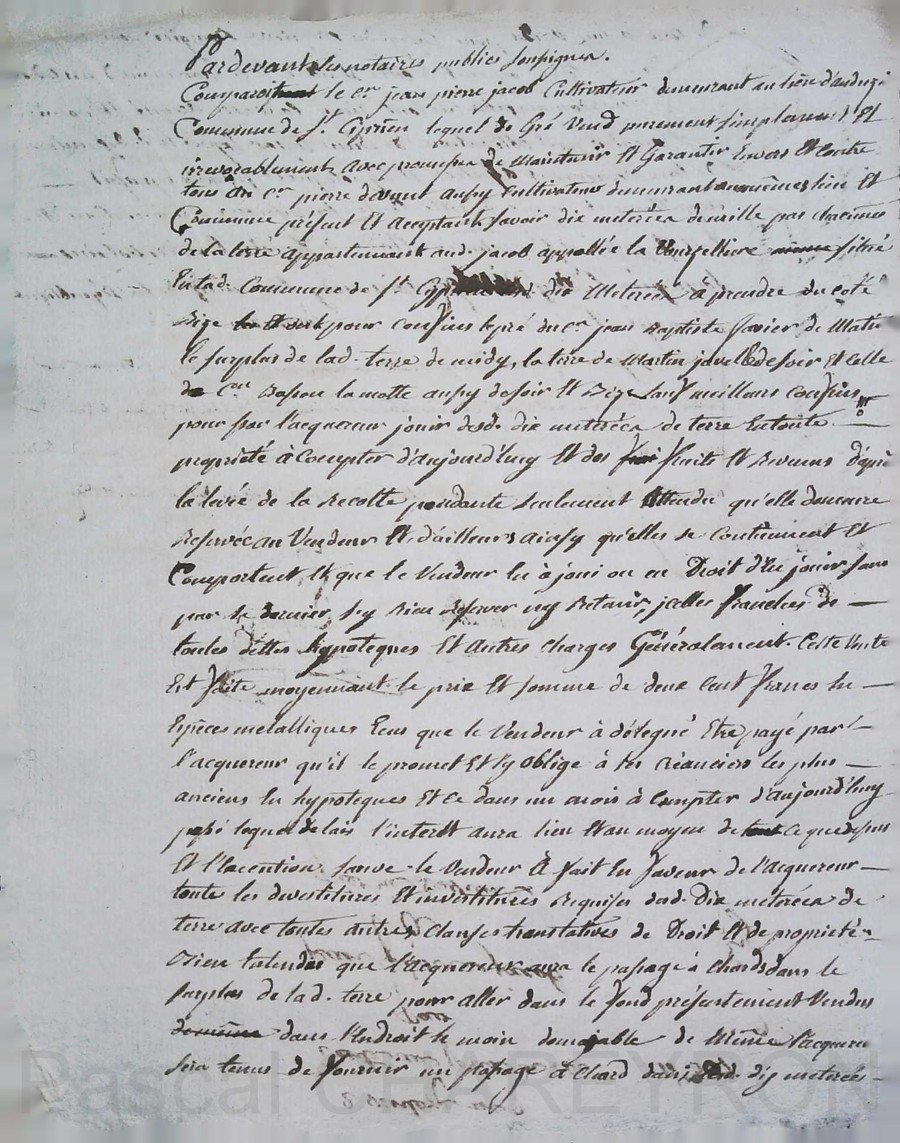 Pardevant les notaires publics soussignes.
Comparoit le Cen jean pierre jacob Cultivateur demeurant au lieu d'auduzi
Commune de St. Ciprien lequel de Gré Vend purement simplement Et
irrevocablement avec promesse de Maintenir Et Garantir Envers Et Contre
tous au Cen pierre aussy Cultivateur demeurant au même lieu Et
Commune présent Et acceptant Savoir dix meterées pas
de la terre appartenante aud. jacob appellée la sitré
En lad. Commune de St. dix Meterées à prendre du coté
Bize pour Confins le pré du Cen jean Baptiste de Matin
le surplus de lad. terre de midy, la terre de Martin de soir Et Celle
de Cen la motte aussy de soir Et Bize Sauf meilleurs Confins
pour par l'acquereur jouir desd. dix meterées de terre En toute
proprieté à Compter d'aujourd'huy Et des fruits Et Revenus d'après
la levée de la Recolte pendante seulement Attendu qu'elle demeure
Reservée au Vendeur Et d'ailleurs ainsy qu'elles se Contiennent Et
Comportent Et que le Vendeur En à joui ou eu Droit d'En jouir sans
par ce dernier s'y Rien Reserver ny Retenir, jcelles franches de
toutes dettes hypoteques Et Autres charges Généralement. Cette Vente
Est faite moyennant le prix Et somme de deux Cent francs En
Espèces metalliques que le Vendeur à délegué Etre payé par
l'acquereur qu'il le promet Et s'y oblige à ses Créanciers les plus
anciens En hypoteques Et Ce dans un mois à Compter d'aujourd'huy
passé lequel delais l'interêt aura lieu Et au moyen de Ce que dessus
Et l'Execution Sauve le Vendeur A fait En faveur de l'acquereur
toute les devestitures Et investitures Requises desd. Dix meterées de
terre avec toutes autres Clauses translatives de Droit Et de proprieté
Bien Entendu que l'acquereur aura le passage à Chards dans le
surplus de lad. terre pour aller dans le fond présentement Vendus
dans l'Endroit le moin domajable de Même l'acquereur
sera tenus de fournir un passage à Chard dans lesd. dix meterées
Pascal CHAREYRON